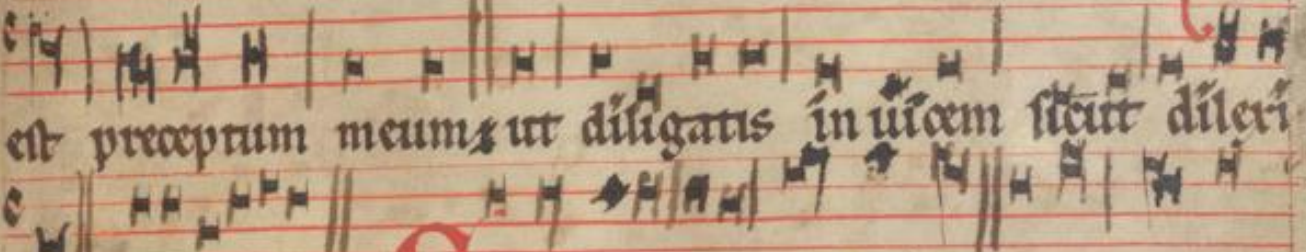 est preceptum meum ut diligatis in uicem sicut dilexi